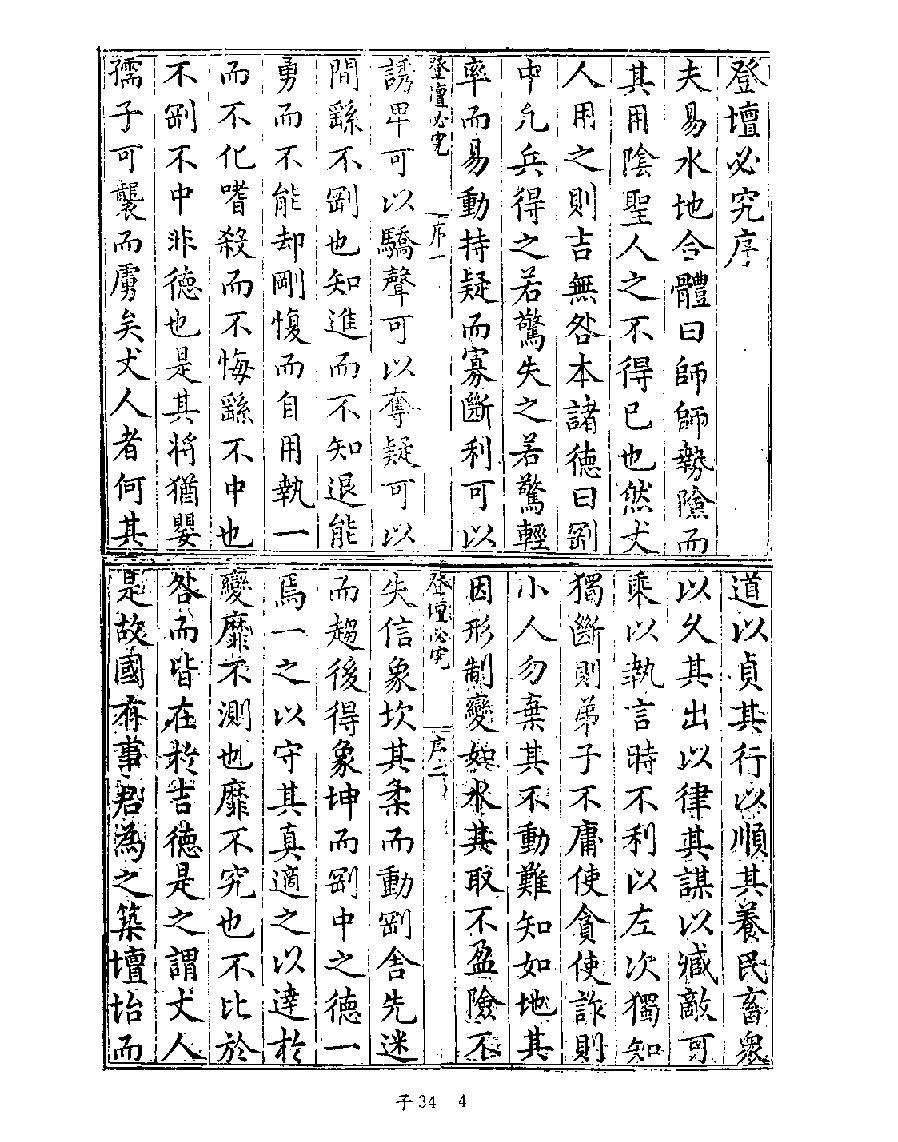 登壇必究序
夫易水地合體曰師師勢險而
其用陰聖人之不得已也然丈
人用之則吉無咎本諸德曰剛
中允兵得之若驚失之若驚輕
率而易動持疑而寡斷利可以
登壇必究 序一
誘卑可以驕聲可以奪疑可以
間繇不剛也知進而不知退能
勇而不能却剛愎而自用執一
而不化嗜殺而不悔繇不中也
不剛不中非德也是其將猶嬰
孺子可襲而虜矣丈人者何其
道以貞其行以順其養民畜衆
以久其出以律其謀以臧敵可
乘以執言時不利以左次獨知
獨斷則弟子不庸使貪使詐則
小人勿棄其不動難知如地其
因形制變如水其取不盈險不
登壇必究 序二
失信象坎其柔而動剛舍先迷
而趨後得象坤而剛中之德一
焉一之以守其真適之以達於
變靡不測也靡不究也不比於
咎而皆在於吉德是之謂丈人
是故國有事君為之築壇坮而
子34 4